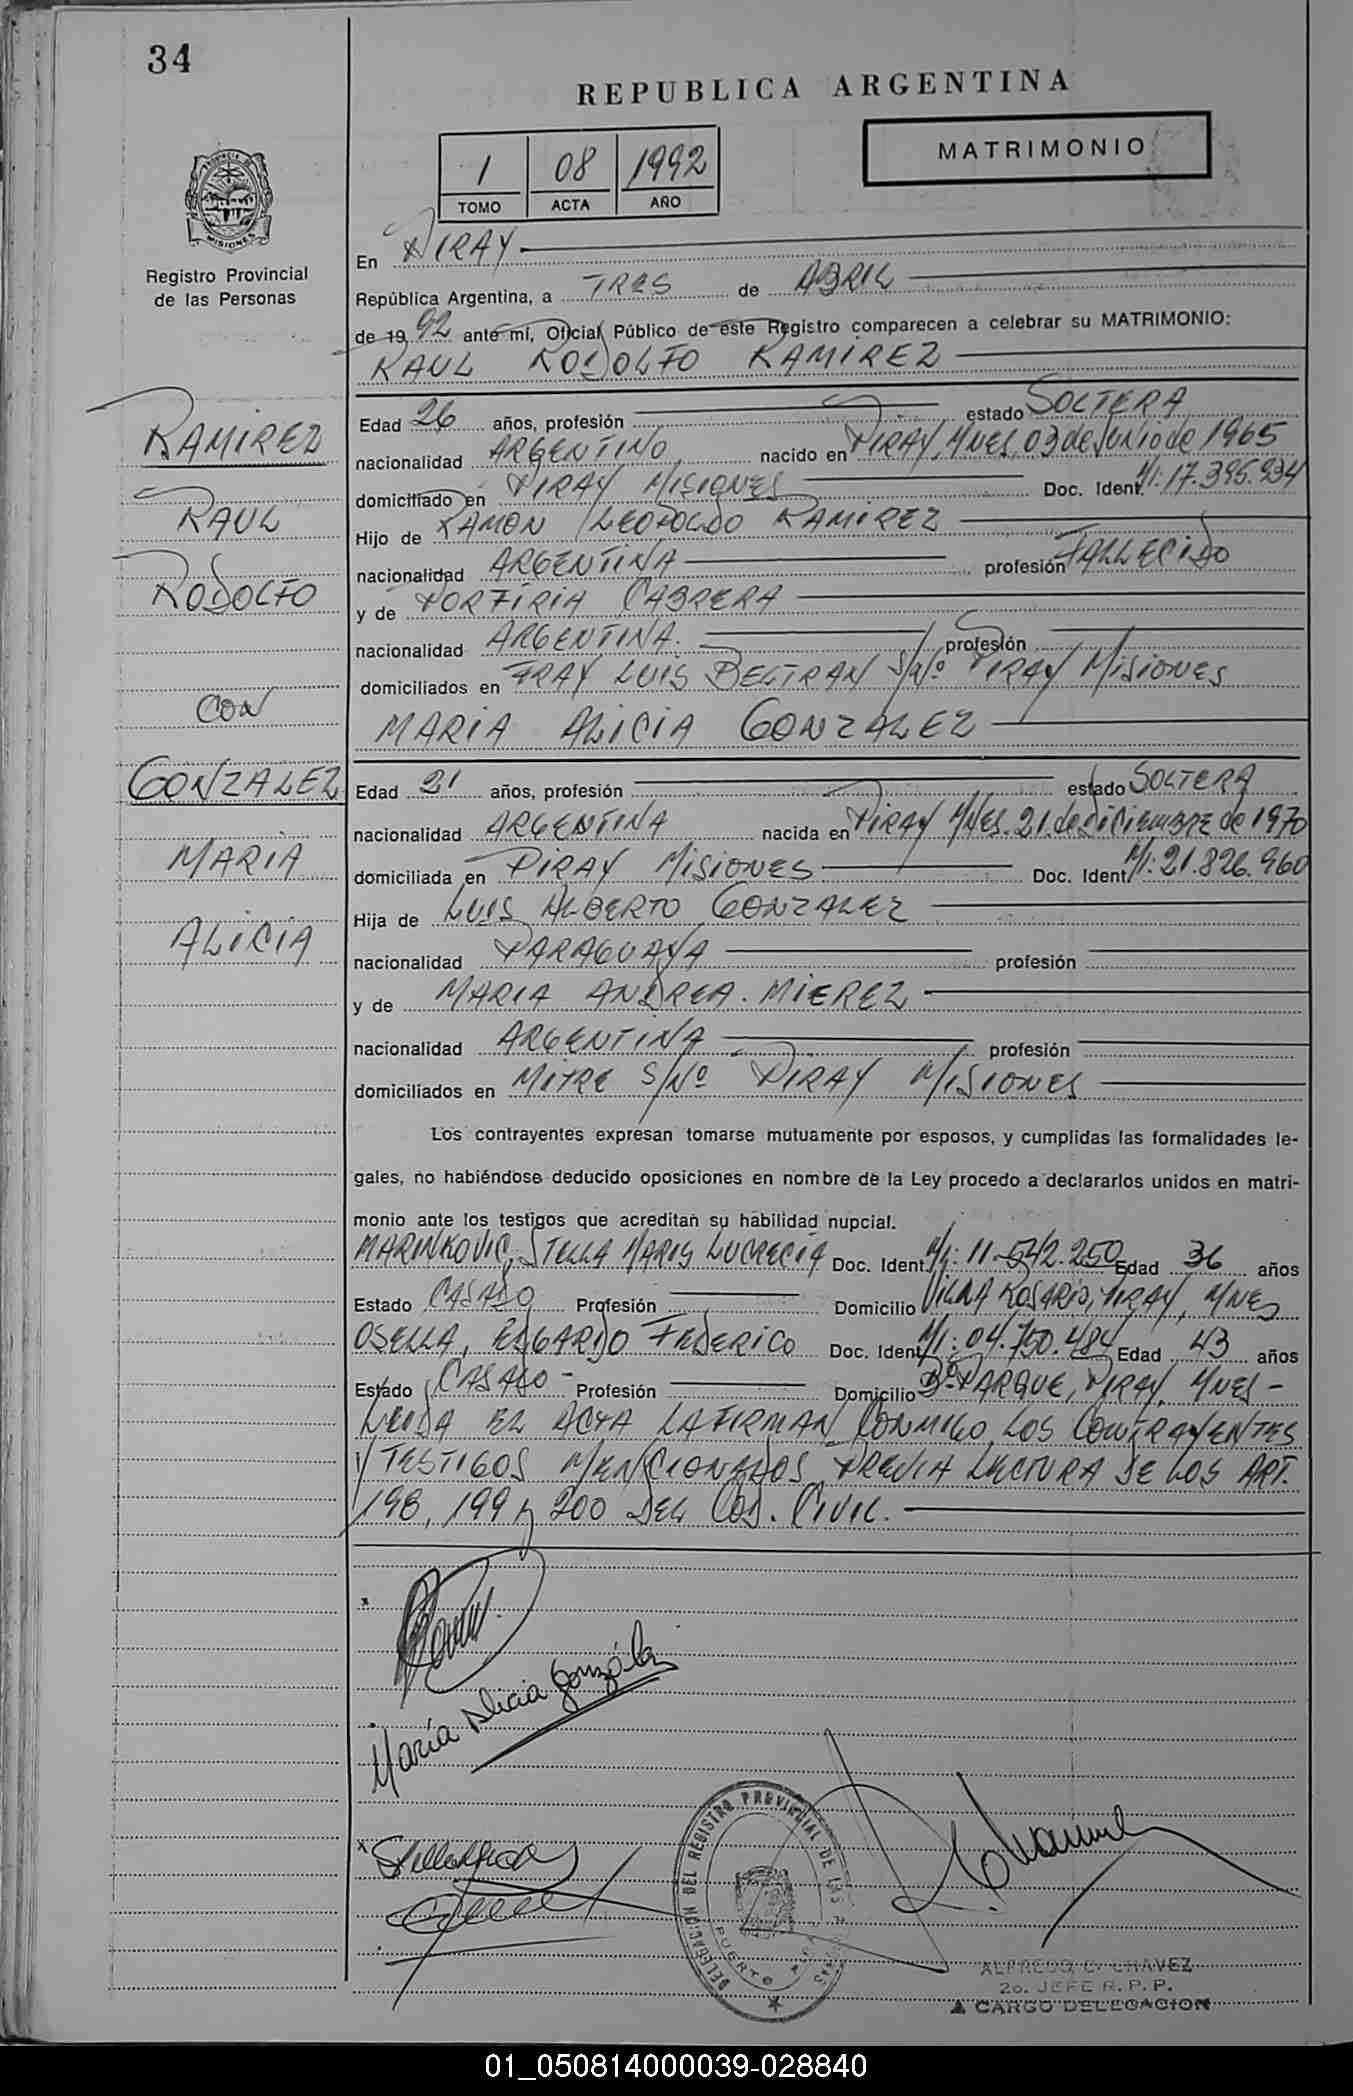 34
REPUBLICA ARGENTINA
MATRIMONIO
1 08 1992
TOMO ACTA AÑO
PROVINCIA DE MISIONES
Registro Provincial
de las Personas
En PIRAY
República Argentina, a TRES de ABRIL
de 1992 ante mí, Oficial Público de este Registro comparecen a celebrar su MATRIMONIO:
RAUL RODOLFO RAMIREZ
RAMIREZ
RAUL
RODOLFO
CON
GONZALEZ
MARIA
ALICIA
Edad 26 años, profesión estado SOLTERA
nacionalidad ARGENTINO nacido en PIRAY, MNES, 03 de JUNIO de 1965
domiciliado en PIRAY MISIONES Doc. Ident. MI: 17.395.934
Hijo de RAMON LEOPOLDO RAMIREZ
nacionalidad ARGENTINA profesión FALLECIDO
y de PORFIRIA CABRERA
nacionalidad ARGENTINA. profesión
domiciliados en FRAY LUIS BELTRAN S/Nº PIRAY MISIONES
MARIA ALICIA GONZALEZ
Edad 21 años, profesión estado SOLTERA
nacionalidad ARGENTINA nacida en PIRAY MNES. 21 de DICIEMBRE de 1970
domiciliada en PIRAY MISIONES Doc. Ident. MI: 21.826.960
Hija de LUIS ALBERTO GONZALEZ
nacionalidad PARAGUAYA profesión
y de MARIA ANDREA. MIEREZ
nacionalidad ARGENTINA profesión
domiciliados en MITRE S/Nº PIRAY MISIONES
Los contrayentes expresan tomarse mutuamente por esposos, y cumplidas las formalidades le-
gales, no habiéndose deducido oposiciones en nombre de la Ley procedo a declararlos unidos en matri-
monio ante los testigos que acreditan su habilidad nupcial.
MARINKOVIC, STELLA MARIS LUCRECIA Doc. Ident. MI: 11.542.250 Edad 36 años
Estado CASADO Profesión Domicilio VILLA ROSARIO, PIRAY, MNES
OSELLA, EDGARDO FEDERICO Doc. Ident. MI: 04.750.484 Edad 43 años
Estado CASADO - Profesión Domicilio Bº PARQUE, PIRAY, MNES -
LEIDA EL ACTA LA FIRMAN CONMIGO LOS CONTRAYENTES
Y TESTIGOS MENCIONADOS PREVIA LECTURA DE LOS ART.
198, 199 y 200 DEL COD. CIVIL.
María Alicia González
DELEGACION DEL REGISTRO PROVINCIAL DE LAS PERSONAS
PUERTO
ALFREDO C. CHAVEZ
2o. JEFE R. P. P.
A CARGO DELEGACION
01_050814000039-028840